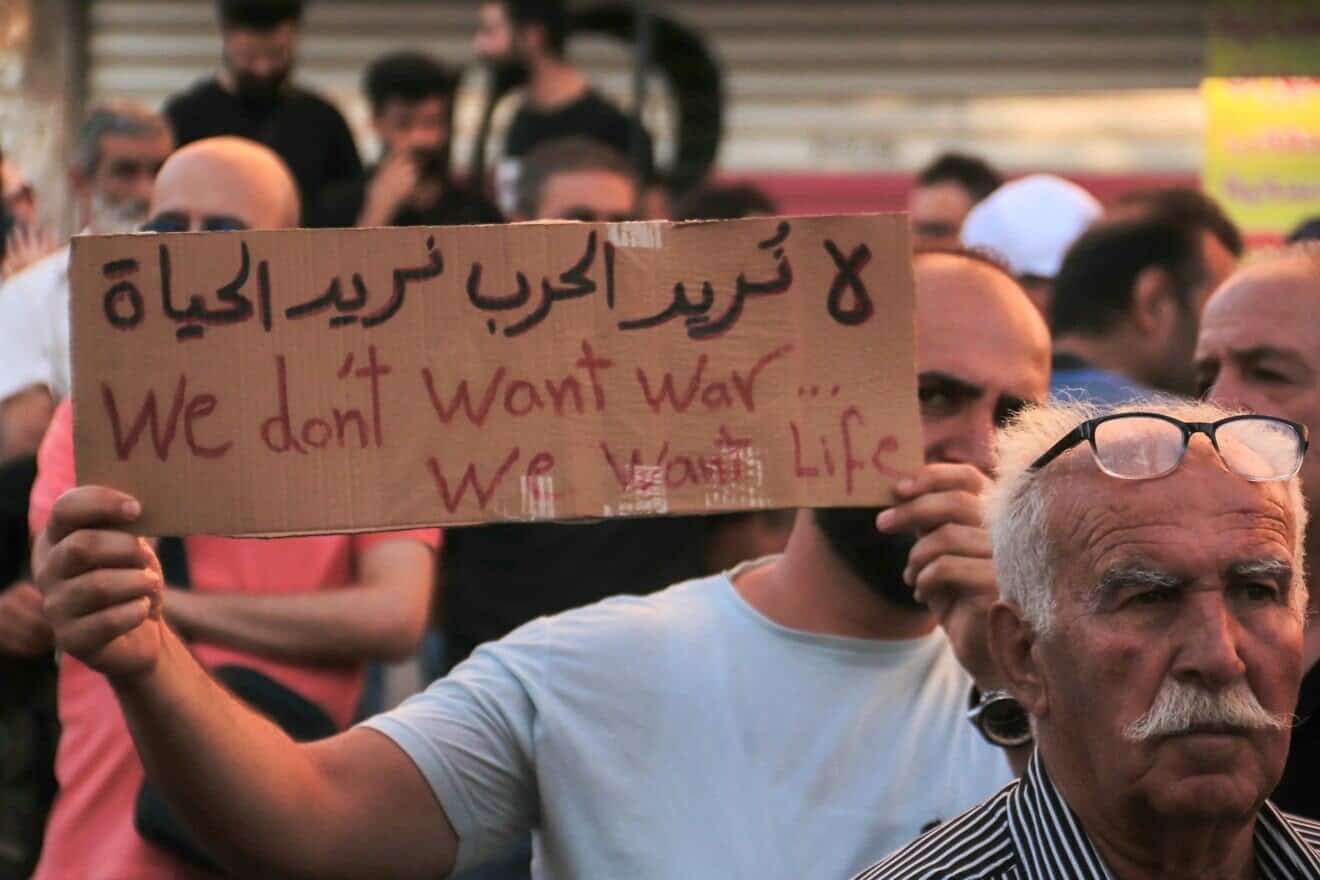 لا نُريد الحرب نريد الحياة
We don't want war...
We want Life